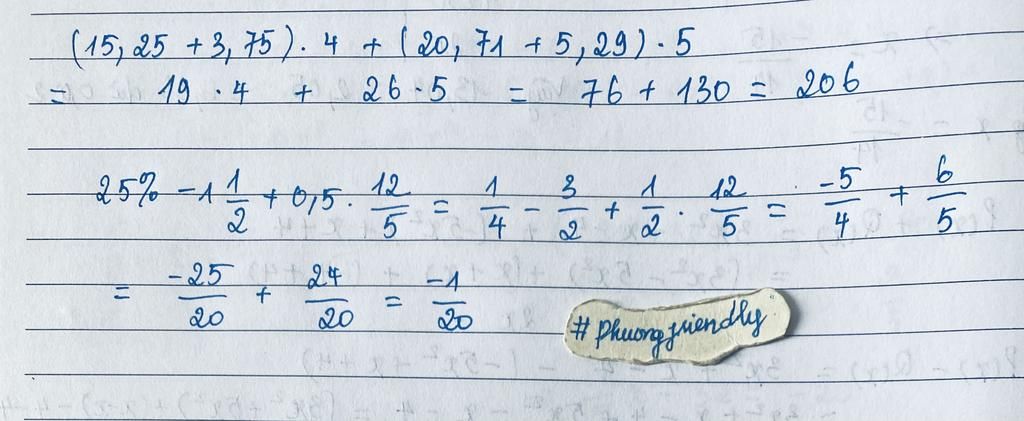 (15,25 + 3,75) · 4 + (20,71 + 5,29) · 5
= 19 · 4 + 26 · 5 = 76 + 130 = 206
25% - 1 1/2 + 0,5 · 12/5 = 1/4 - 3/2 + 1/2 · 12/5 = -5/4 + 6/5
= -25/20 + 24/20 = -1/20
# phuongfriendly